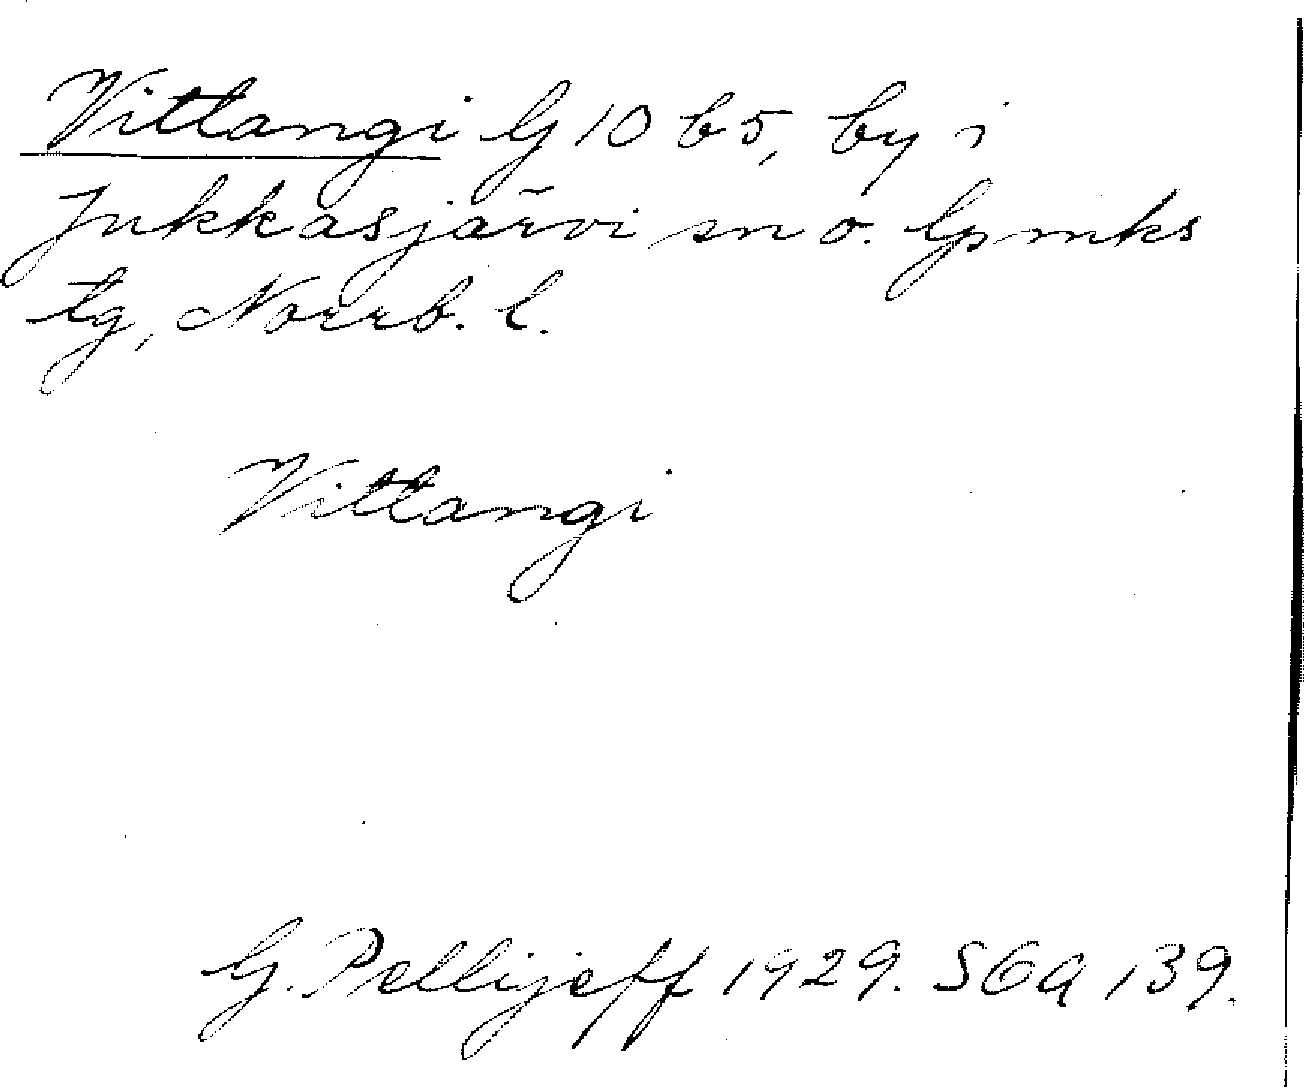 Vittangi G 10 b 5, by i
Jukkasjärvi sn o. lpmks
tg, Norrb. l.
Vittangi
G. Pellijeff 1929. SGA 139.